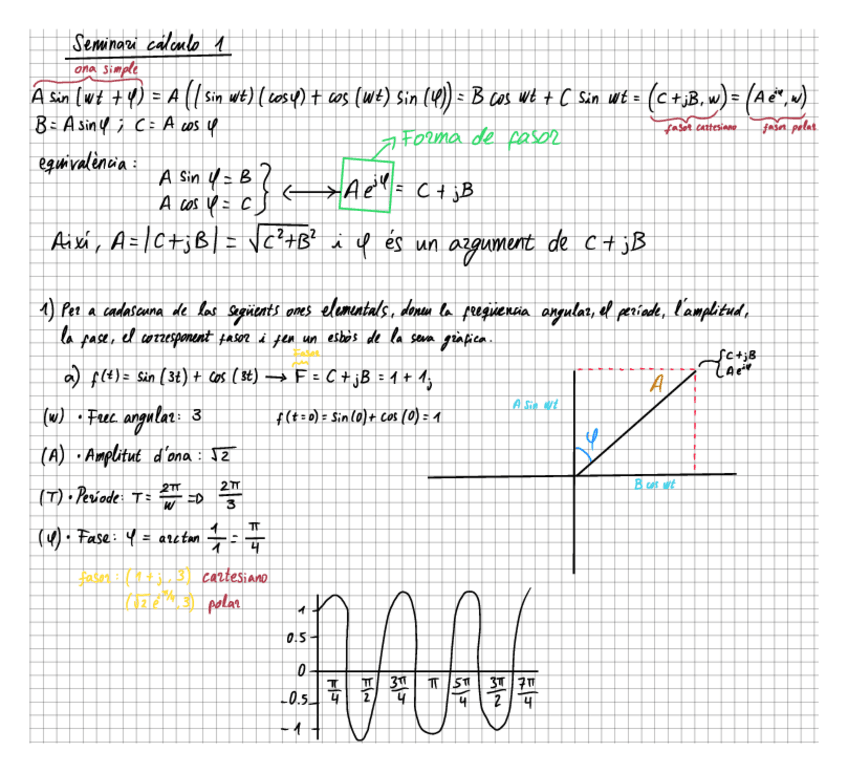 Seminari càlculo 1
ona simple
A sin (wt + φ) = A ((sin wt) (cosφ) + cos (wt) sin (φ)) = B cos wt + C sin wt = (C + jB, w) = (A e^{jφ}, w)
fasor cartesiano
fasor polar
B = A sin φ ; C = A cos φ
Forma de fasor
equivalència :
A sin φ = B
A cos φ = C } ⟷ A e^{jφ} = C + jB
Així, A = |C + jB| = √C²+B² ² i φ és un argument de C + jB
1) Per a cadascuna de las següents ones elementals, doneu la freqüencia angular, el període, l'amplitud,
la fase, el corresponent fasor i feu un esbòs de la seva gràfica.
Fasor
a) f(t) = sin (3t) + cos (3t) → F = C + jB = 1 + 1j
(w) · Frec. angular: 3
f(t=0) = sin(0) + cos (0) = 1
(A) · Amplitut d'ona : √2
(T) · Període: T = 2π/w => 2π/3
(φ) · Fase: φ = arctan 1/1 = π/4
fasor : (1 + j, 3) cartesiano
(√2 e^{jπ/4}, 3) polar
C + jB
A e^{jφ}
A
A sin wt
φ
B cos wt
1
0.5
0
-0.5
-1
π/4 π/2 3π/4 π 5π/4 3π/2 7π/4